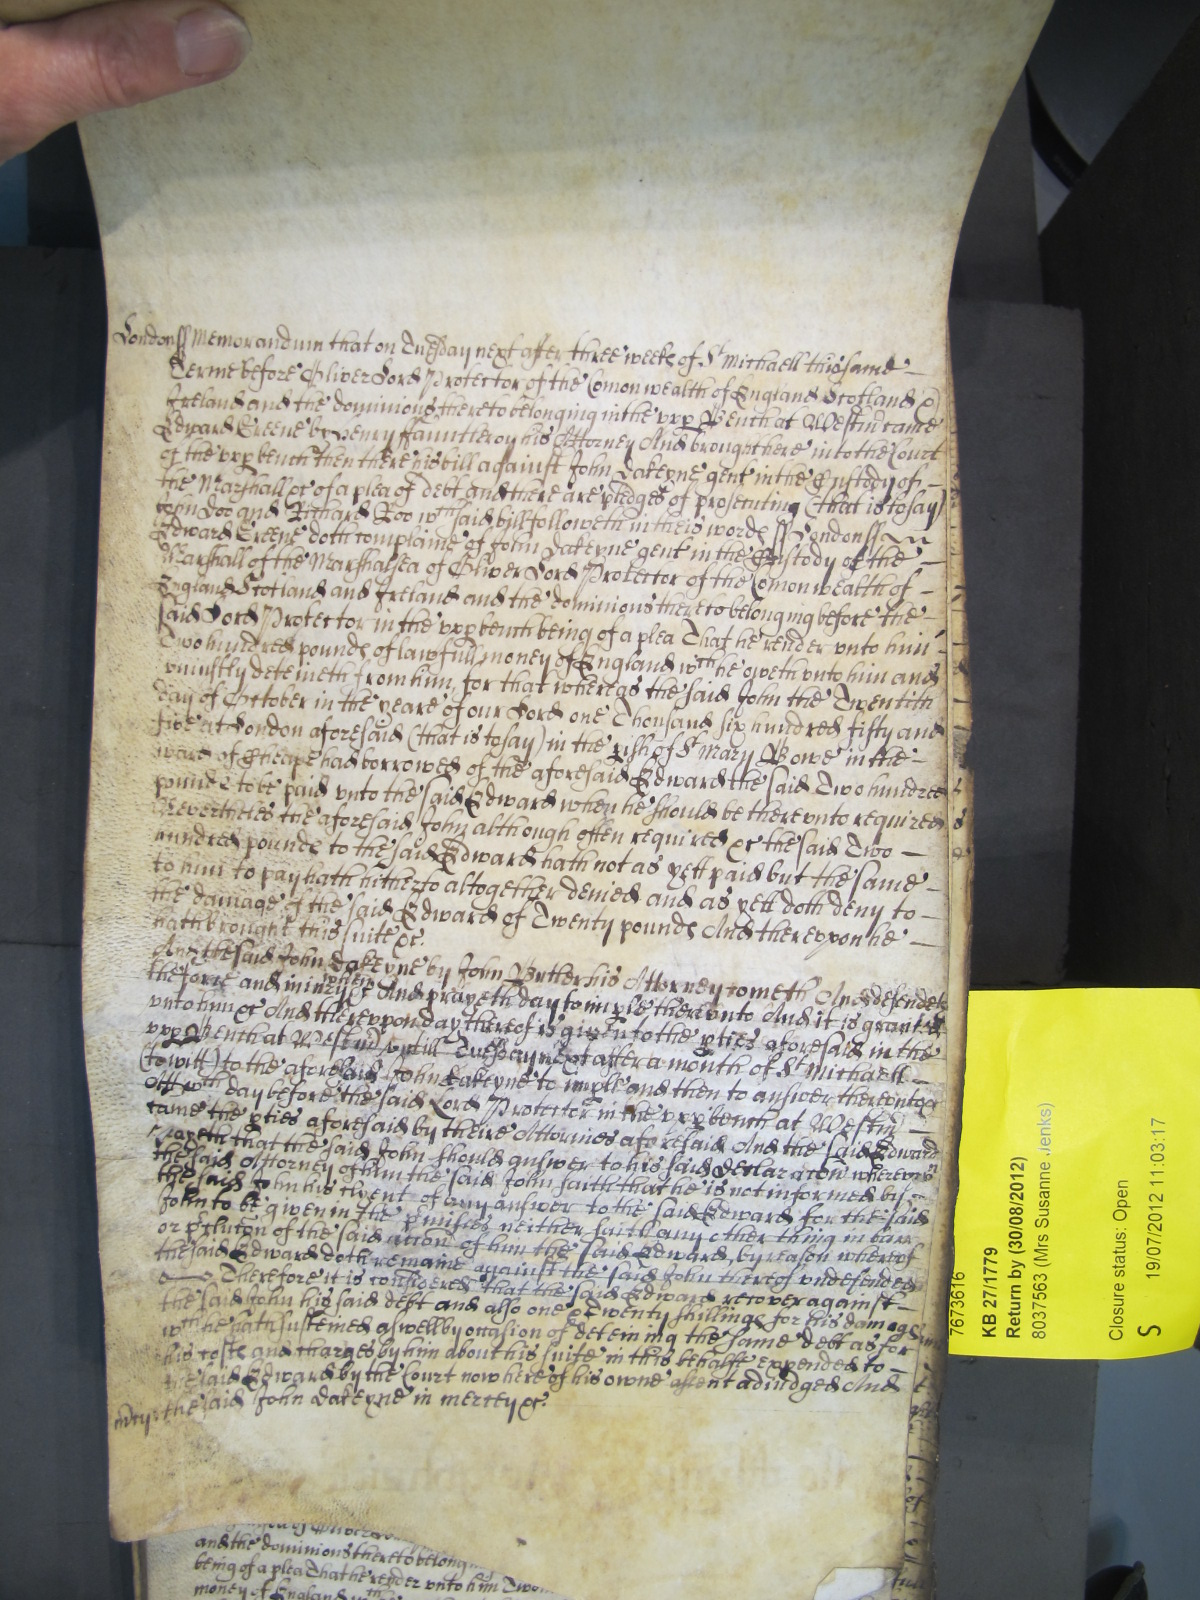 Londonss Memorandum that on Tuesday next after three weeks of St Michaell this same
Terme before Oliver Lord Protector of the Comonwealth of England Scotland &
Ireland and the dominions thereto belonging in the vpp Bench at Westmr came
Edward Greene by Henry ffauntleroy his Attorney And brought here into the Court
of the vpp bench then there his bill against John Dakeyne gent in the Custody of
the Marshall &c of a plea of debt and there are pledges of prosecuting (that is to say)
John Doo and Richard Roo wch said bill followeth in theis words ss Londonss
Edward Greene doth complaine of John Dakeyne gent in the Custody of the
Marshall of the Marshalsea of Oliver Lord Protector of the Comonwealth of
England Scotland and Ireland and the dominions thereto belonging before the
said Lord Protector in the vpp bench being of a plea That he render vnto him
Two hundred pounds of lawfull money of England wch he oweth vnto him and
vniustly deteineth from him, for that whereas the said John the Twentith
day of October in the yeare of our Lord one Thousand six hundred fifty and
five at London aforesaid (that is to say) in the pish of St Mary Bowe in the
ward of Cheape had borrowed of the aforesaid Edward the said Two hundred
pounds to be paid vnto the said Edward when he should be therevnto required
Nevertheles the aforesaid John although often required &c the said Two
hundred pounds to the said Edward hath not as yett paid but the same
to him to pay hath hitherto altogether denied and as yett doth deny to
the damage of the said Edward of Twenty pounds And therevpon he
hath brought this suite &c.
And the said John Dakeyne by John Butler his Attorney cometh And defendeth
the force and iniury when &c And prayeth day to imple therevnto And it is granted
vnto him &c And therevpon day thereof is given to the pties aforesaid in the
vpp Bench at Westmr vntill Tuesday next after a month of St Michaell
(to witt) to the aforesaid John Dakeyne to imple and then to answer therevnto &c
Att wch day before the said Lord Protector in the vpp bench at Westmr
came the pties aforesaid by theire Attornies aforesaid And the said Edward
prayeth that the said John should answer to his said declaracon wherevpon
the said Attorney of him the said John saith that he is not informed by
the said John his Clyent of any answer to the said Edward for the said
John to be given in the pmisses neither saith any other thing in barr
or pclusion of the said accion of him the said Edward, by reason whereof
the said Edward doth remaine against the said John thereof vndefended
Therefore it is considered that the said Edward recover against
the said John his said debt and also one & Twenty shillings for his damages
wch he hath susteined aswell by occasion of deteining the same debt as for
his costs and charges by him about his suite in this behalfe expended to
the said Edward by the Court now here of his owne assent adiudged And
mrcy: the said John Dakeyne in mercy &c.
and the dominions thereto belong
being of a plea That he render vnto him Two
money of England wch
7673616
KB 27/1779
Return by (30/08/2012)
8037563 (Mrs Susanne Jenks)
Closure status: Open
S 19/07/2012 11:03:17